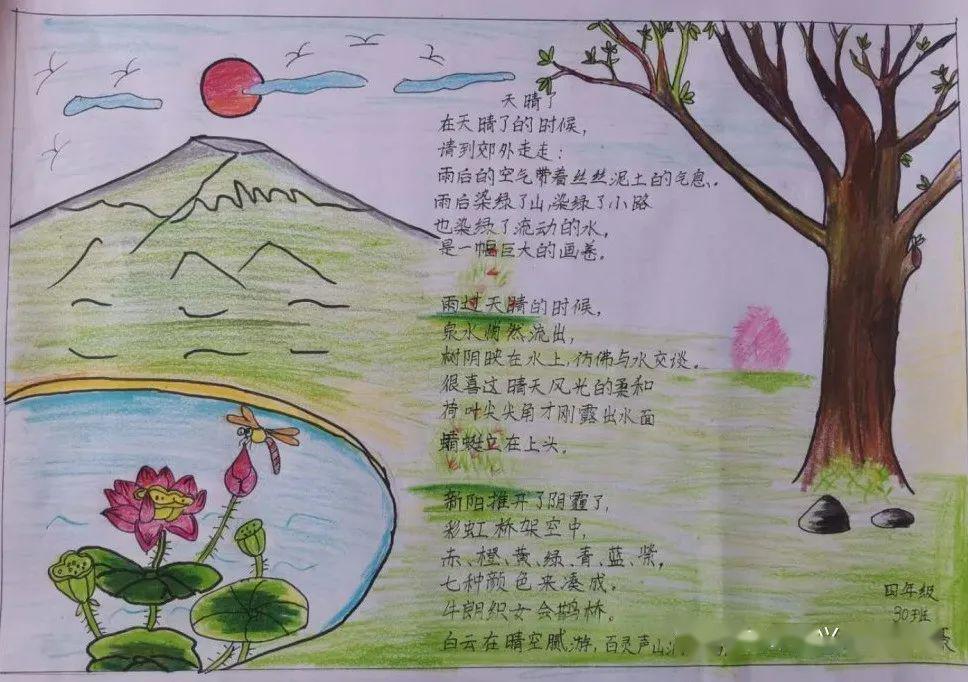 天晴了
在天晴了的时候，
请到郊外走走：
雨后的空气带着丝丝泥土的气息、。
雨后染绿了山,染绿了小路
也染绿了流动的水，
是一幅巨大的画卷。
雨过天晴的时候，
泉水潺然流出，
树阴映在水上,仿佛与水交谈。
很喜过晴天风光的柔和
荷叶尖尖角才刚露出水面
蜻蜓立在上头。
新阳推开了阴霾了，
彩虹桥架空中，
赤、橙、黄、绿、青、蓝、紫，
七种颜色来凑成。
牛朗织女会鹊桥。
白云在晴空腻游,百灵声山
四年级
30班